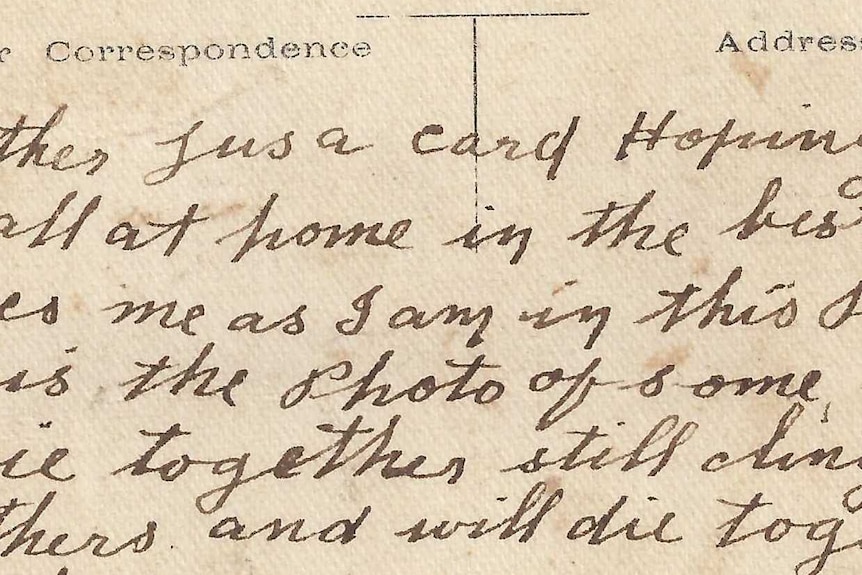 r Correspondence Address
ther Jus a card Hoping
all at home in the bes
es me as I am in this P
is the Photo of some
ie together still cling
thers and will die tog